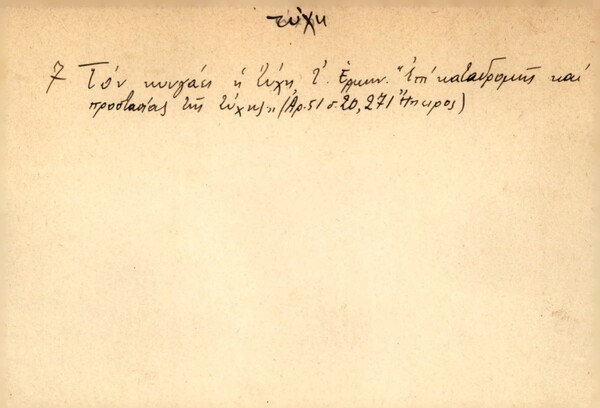 τύχη
7 Τόν κυνγάει ἡ τύχη τ'. Ἑρμην. "Ἐπί καταδρομῆς καί
προστασίας τῆς τύχης" (Ἀρ. 51 σ. 20, 271 Ἤπειρος)